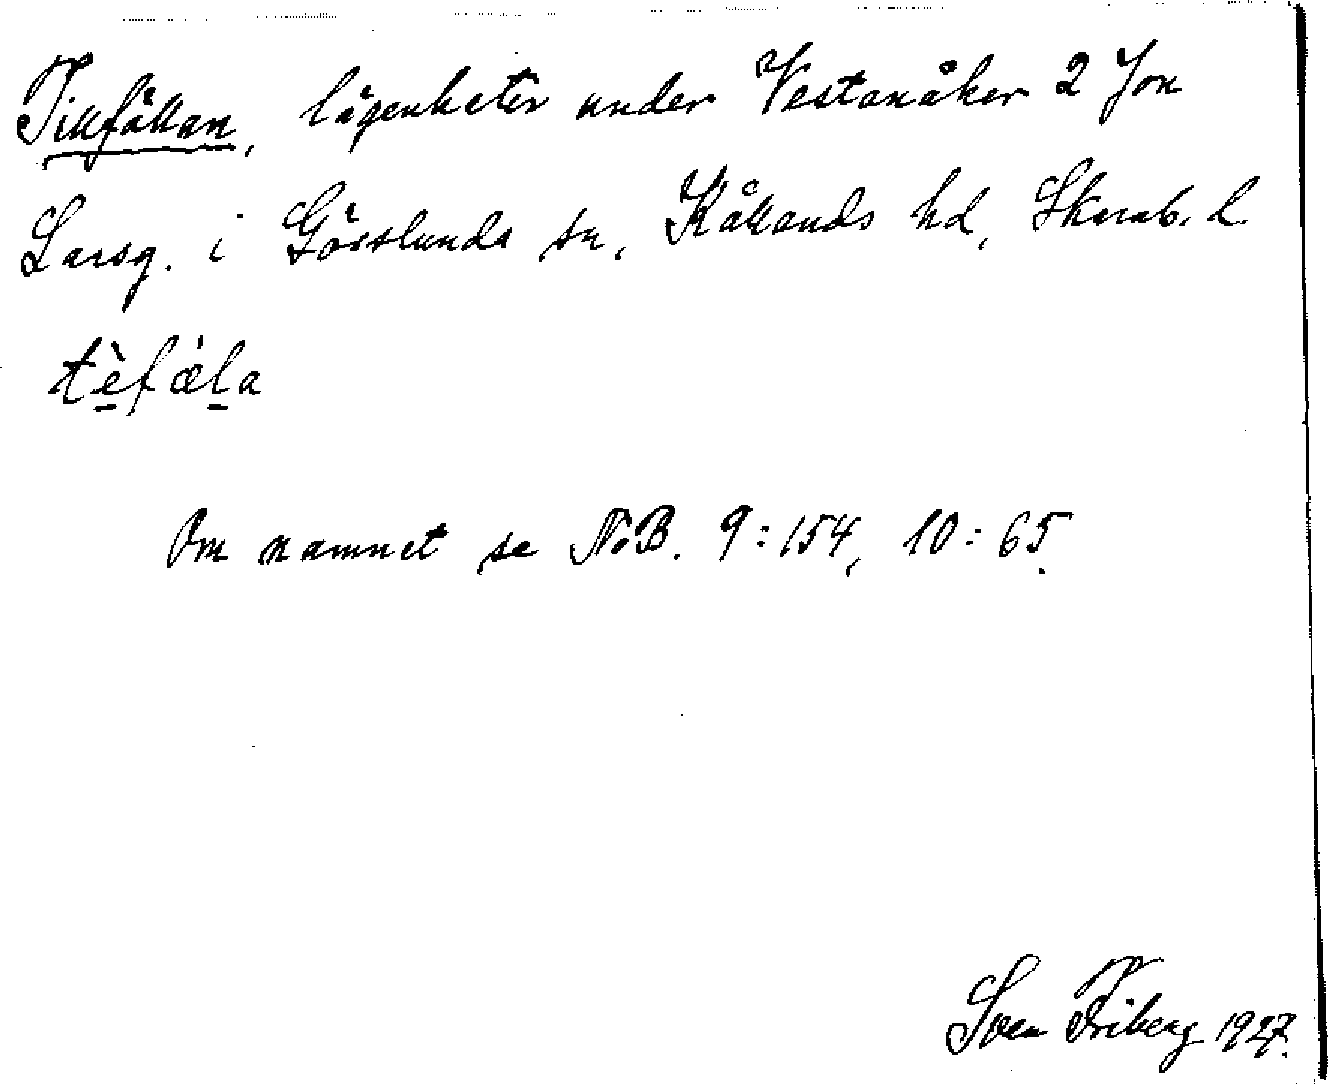 Tillfällan, lägenheter under Vestanåker 2 Jon
Larsg. i Görslunda sn, Kållands hd, Skarab. l.
tèfæ̀la
Om namnet se NoB. 9:154, 10:65.
Sven Friberg 1927.